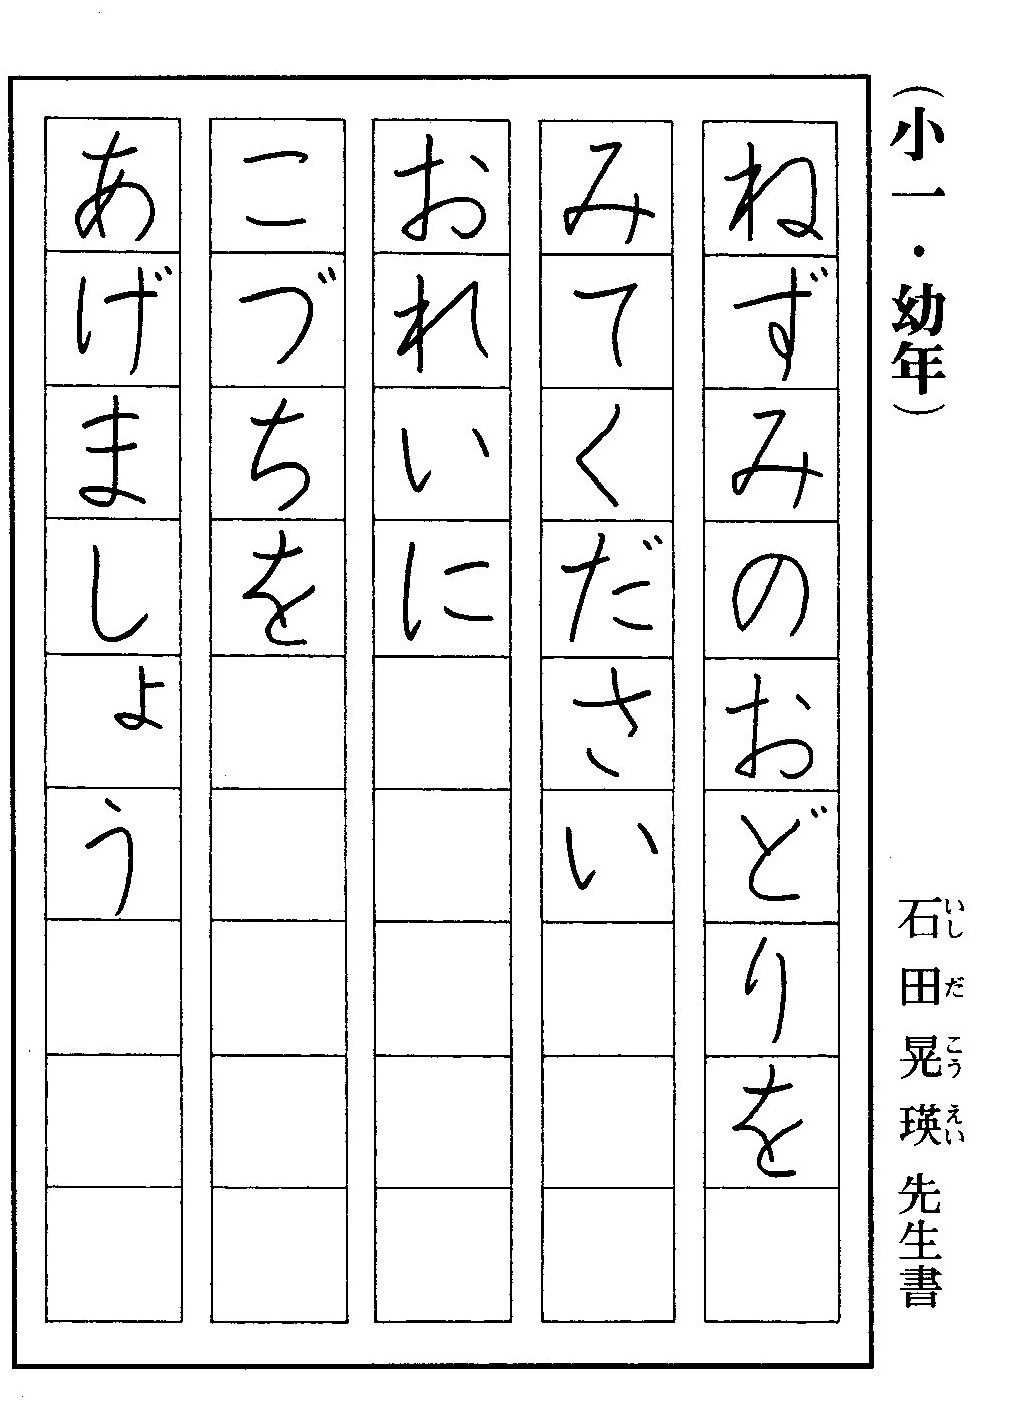 （小一・幼年）
石田晃瑛先生書
いしだこうえい
ねずみのおどりを
みてください
おれいに
こづちを
あげましょう